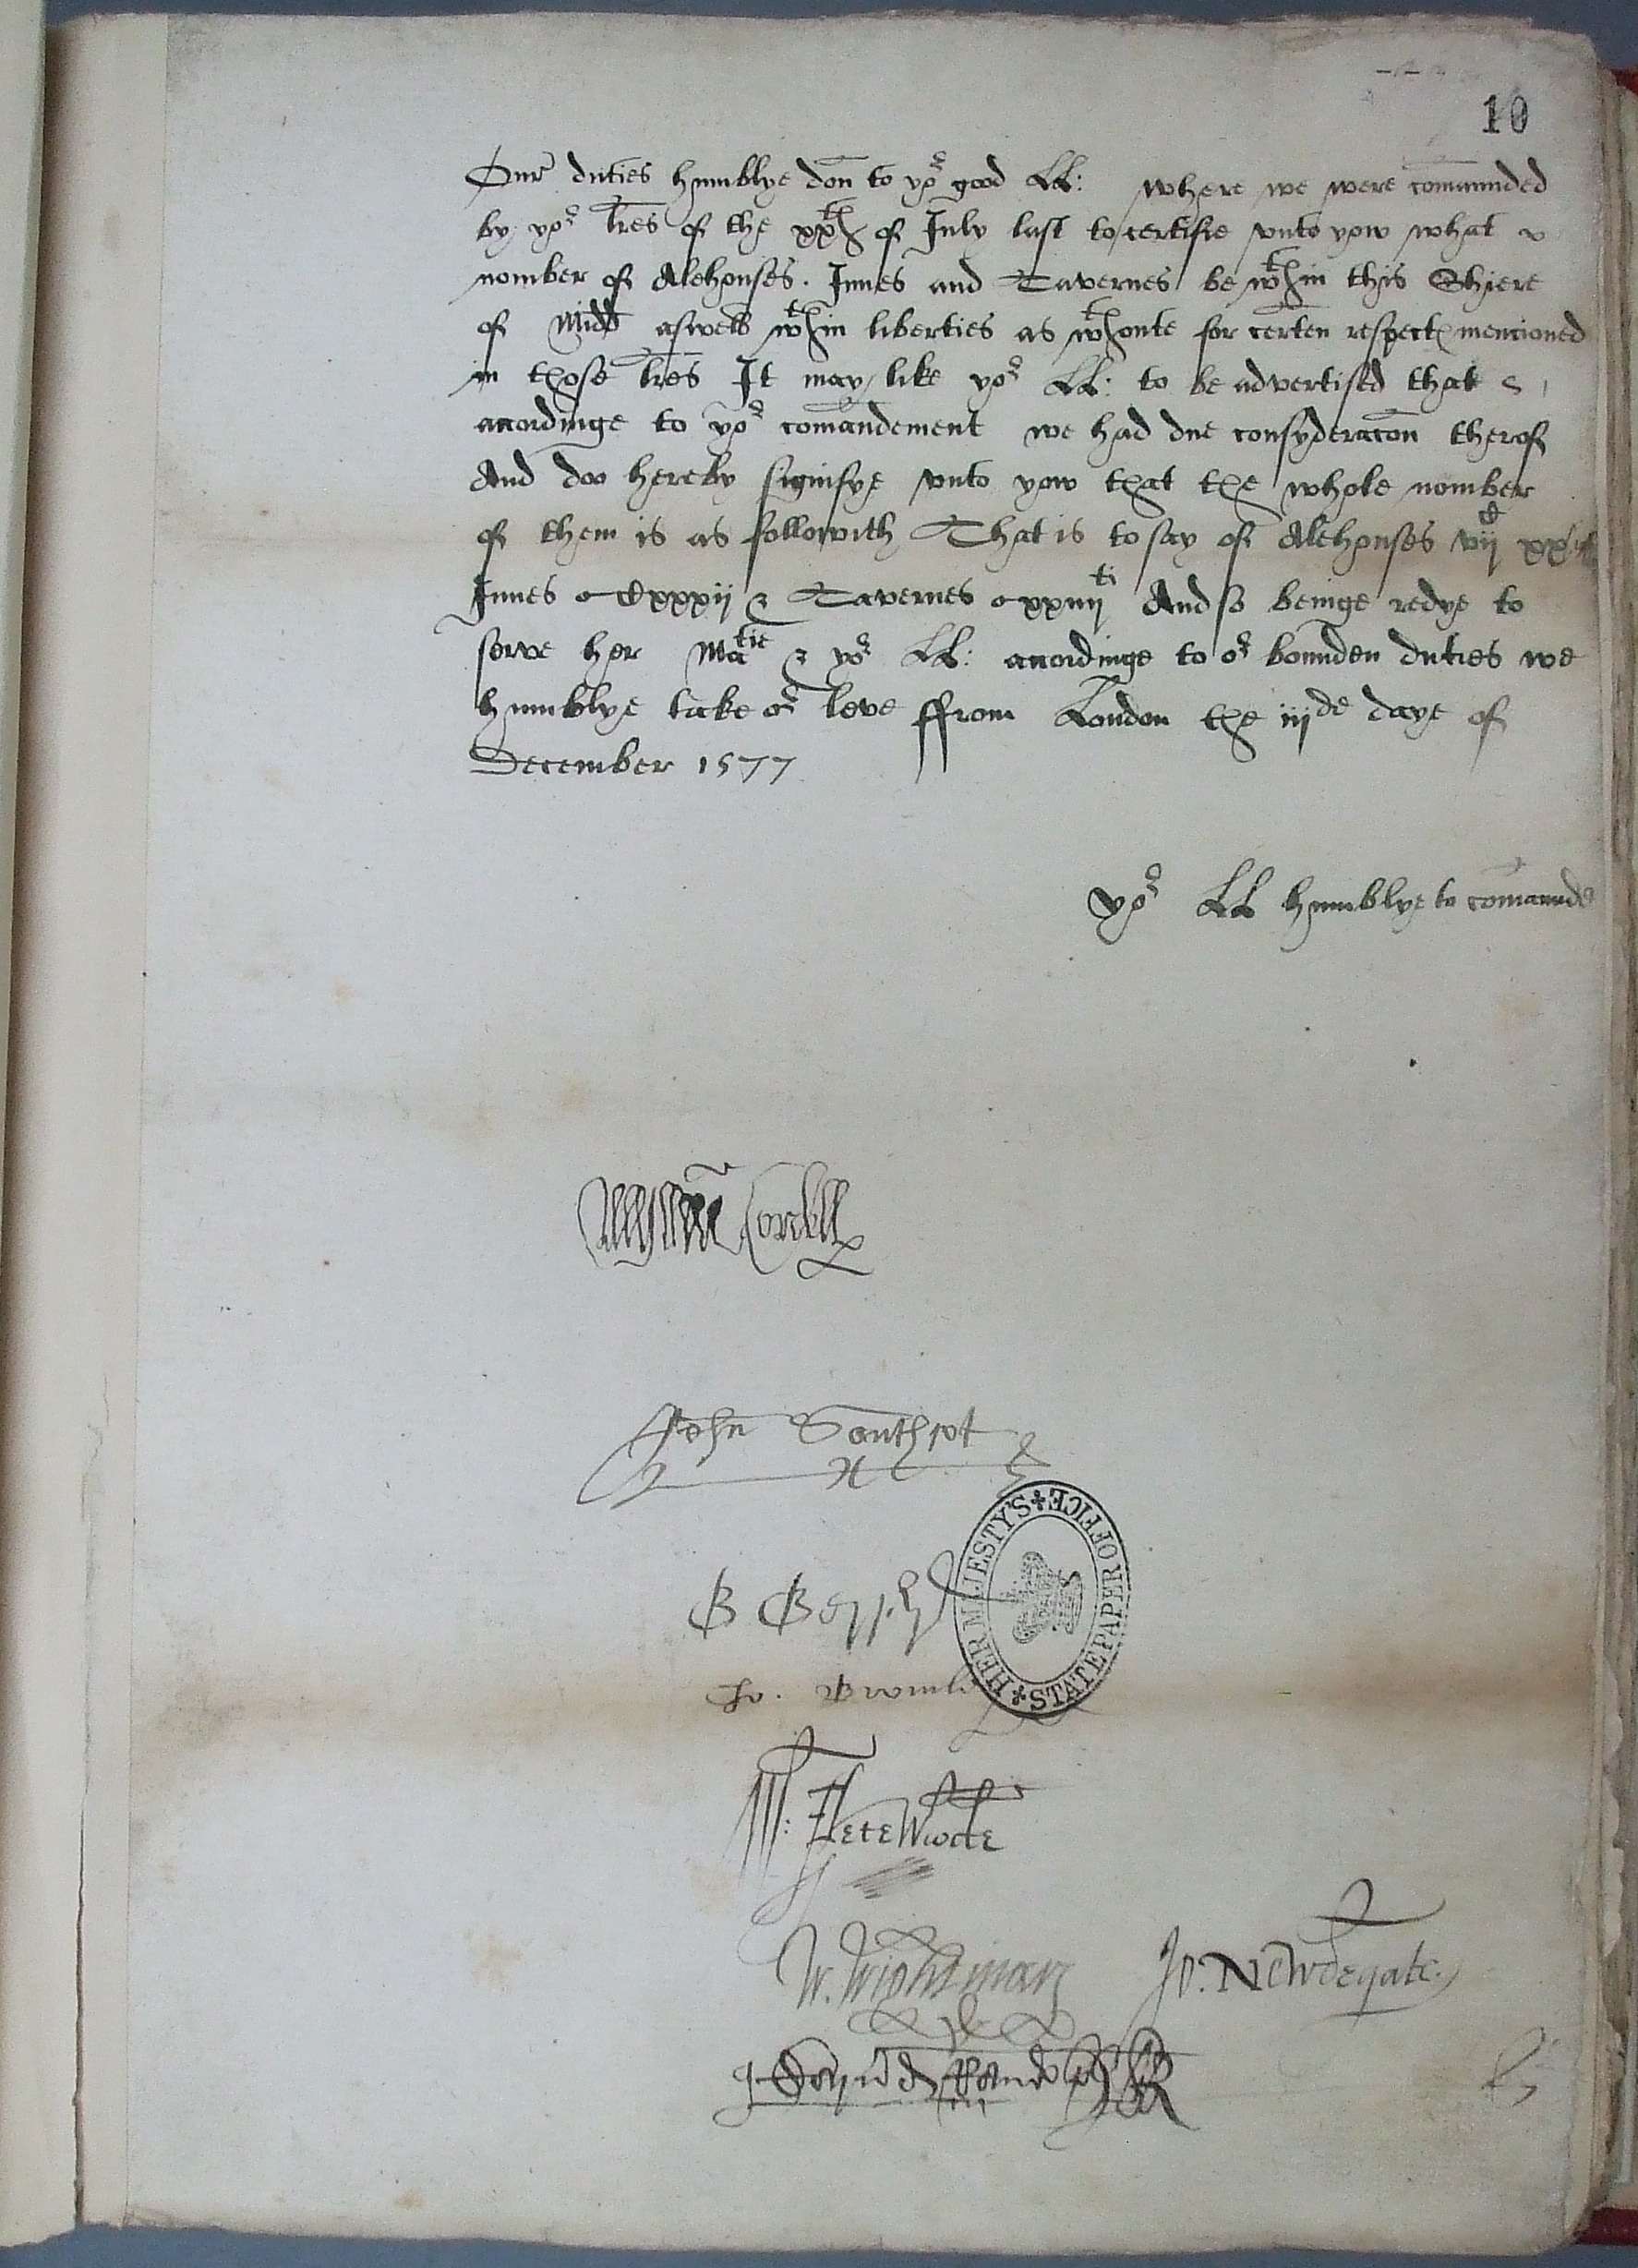 10
Our duties humblye don to yor good LL: where we were comaunded
by yor lres of the xxth of July last to certifie unto yow what
nomber of Alehouses. Innes and Tavernes be wthin this Shiere
of Midd aswell wthin liberties as wthoute for certen respect mencioned
in those lres It may like yor LL: to be advertised that
accordinge to yor comandement we had due consyderacon therof
And doo hereby signifye unto yow that the whole nomber
of them is as followith That is to say of Alehouses vijc xx
Innes Cxxxij & Tavernes xxiiijti And so beinge redye to
serve her Matie & yor LL: accordinge to or bounden duties we
humblye take or leve ffrom London the iijde daye of
December 1577
Yor LL humblye to comaunde
Willm Cordell
John Southcot
HER MAJESTY'S STATE PAPER OFFICE
Tho. Bromley
W: Fletewoode
W. Wightman Jo: Newdegate.